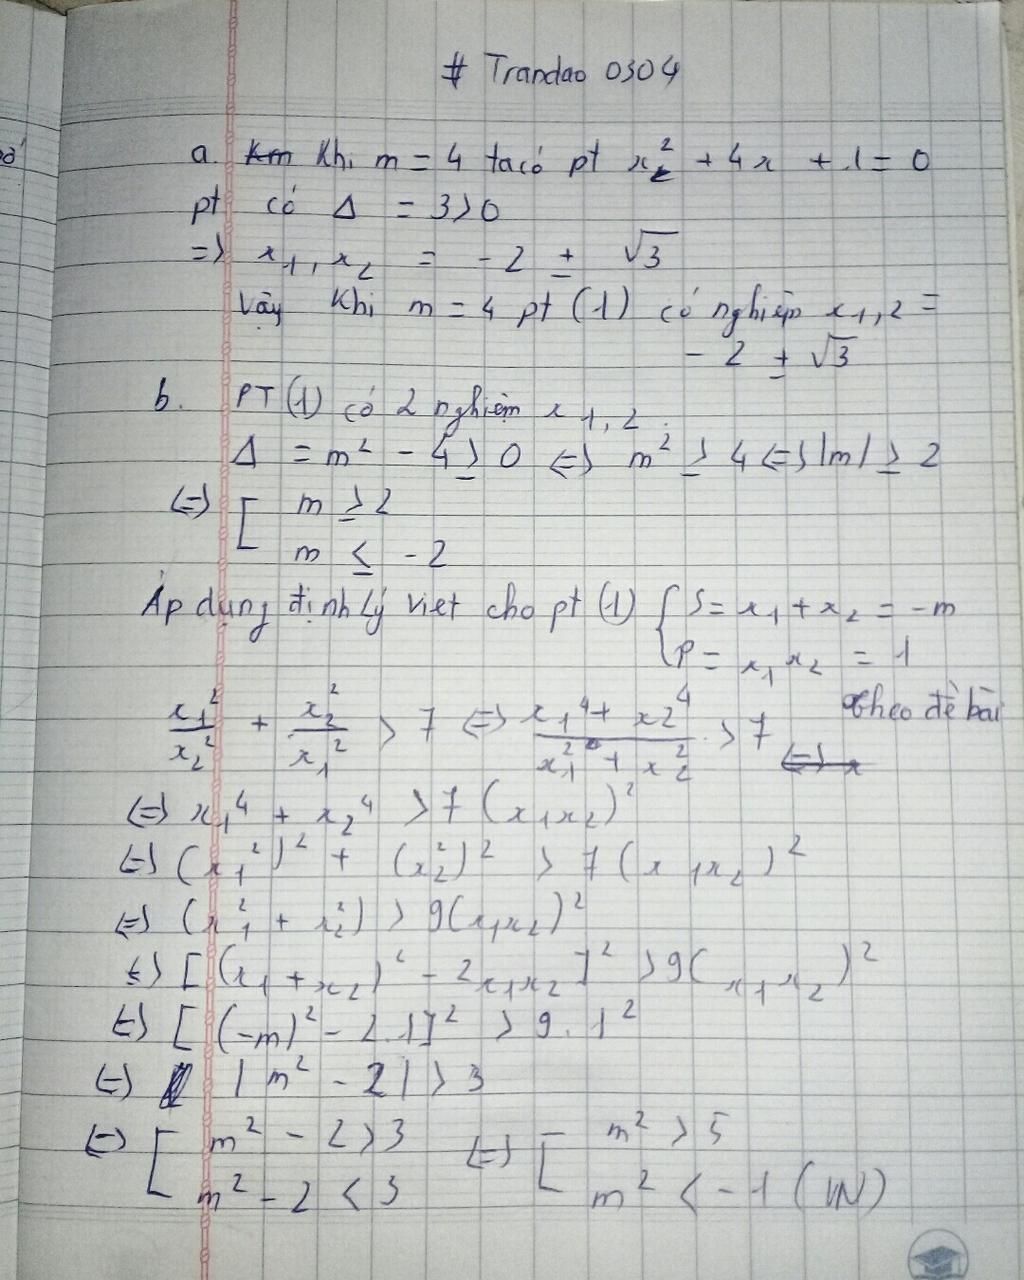 # Trandao 0304
a. Khi m = 4 ta có pt x² + 4x + 1 = 0
pt có Δ = 3 > 0
=> x₁, x₂ = -2 ± √3
Vậy khi m = 4 pt (1) có nghiệm x₁,₂ =
- 2 ± √3
b. PT (1) có 2 nghiệm x₁,₂.
Δ = m² - 4 ≥ 0 <=> m² ≥ 4 <=> |m| ≥ 2
<=> [ m ≥ 2
m ≤ -2
Áp dụng định lý viet cho pt (1) { S = x₁ + x₂ = -m
P = x₁ x₂ = 1
theo đề bài
x₁²/x₂² + x₂²/x₁² > 7 <=> (x₁⁴ + x2⁴)/(x₁² + x₂²) > 7
<=> x₁⁴ + x₂⁴ > 7 (x₁x₂)²
<=> (x₁²)² + (x₂²)² > 7 (x₁x₂)²
<=> (x₁² + x₂²) > 9(x₁x₂)²
<=> [(x₁ + x₂)² - 2x₁x₂]² > 9(x₁x₂)²
<=> [(-m)² - 2.1]² > 9.1²
<=> |m² - 2| > 3
<=> [ m² - 2 > 3 <=> [ m² > 5
m² - 2 < 3 m² < -1 (VN)